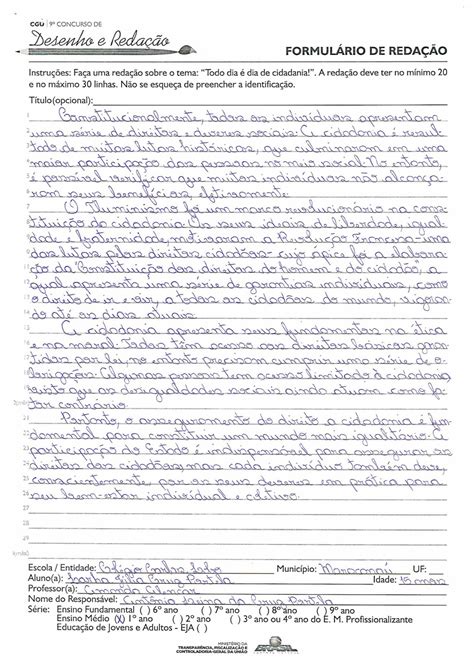 CGU | 9º CONCURSO DE
Desenho e Redação
FORMULÁRIO DE REDAÇÃO
Instruções: Faça uma redação sobre o tema: "Todo dia é dia de cidadania!". A redação deve ter no mínimo 20
e no máximo 30 linhas. Não se esqueça de preencher a identificação.
Título(opcional):
Constitucionalmente, todos os indivíduos apresentam
uma série de direitos e deveres sociais. A cidadania é resul
tado de muitas lutas históricas, que culminaram em uma
maior participação das pessoas no meio social. No entanto,
é possível verificar que muitos indivíduos não alcança-
ram seus benefícios, efetivamente.
O Iluminismo foi um marco revolucionário na cons
tituição da cidadania. Os seus ideais de liberdade, igual
dade e fraternidade, motivaram a Revolução Francesa-uma
das lutas pelos direitos cidadãos- cujo ápice foi a elabora-
ção da "Constituição dos direitos do homem e do cidadão", a
qual apresenta uma série de garantias individuais, como
o direito de ir e vir, a todos os cidadãos do mundo, vigoran-
do até os dias atuais.
A cidadania apresenta seus fundamentos na ética
e na moral. Todos têm acesso aos direitos básicos garan-
tidos por lei, no entanto precisam cumprir uma série de o-
brigações. Algumas possuem acesso limitado à cidadania,
visto que as desigualdades sociais ainda atuam como fa-
tor contrário.
Portanto, o asseguramento do direito a cidadania é fun-
damental para constituir um mundo mais igualitário. A
participação do Estado é indispensável para assegurar os
direitos dos cidadãos, mas cada indivíduo também deve,
conscientemente, por os seus deveres em prática para
seu bem-estar individual e coletivo.
Escola / Entidade: Município: UF:
Aluno(a): Idade: 15 anos
Professor(a):
Nome do Responsável:
Série: Ensino Fundamental ( ) 6º ano ( ) 7º ano ( ) 8º ano ( ) 9º ano
Ensino Médio (X) 1º ano ( ) 2º ano ( ) 3º ano ou 4º ano do E. M. Profissionalizante
Educação de Jovens e Adultos - EJA ( )
MINISTÉRIO DA
TRANSPARÊNCIA, FISCALIZAÇÃO E
CONTROLADORIA-GERAL DA UNIÃO